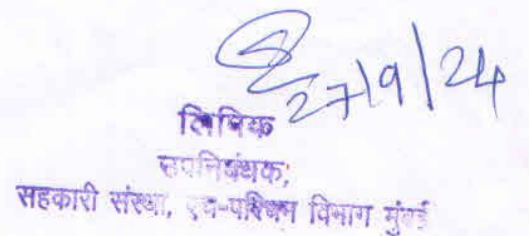 27/9/24
लिपिक
उपनिबंधक,
सहकारी संस्था, एच-पश्चिम विभाग मुंबई